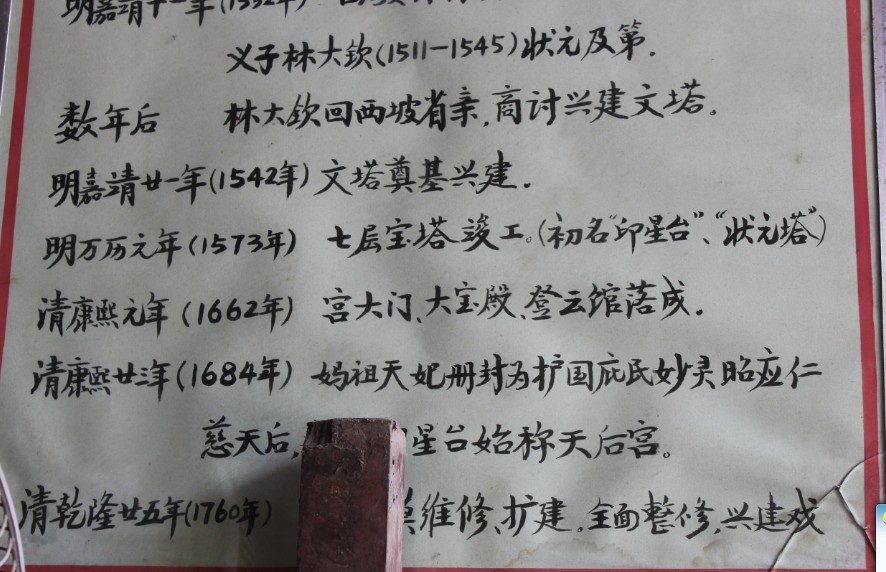 明嘉靖十一年(1532年)
义子林大钦(1511-1545)状元及第.
数年后 林大钦回西坡省亲,商讨兴建文塔。
明嘉靖廿一年(1542年) 文塔奠基兴建.
明万历元年(1573年) 七层宝塔竣工。(初名“印星台”、“状元塔”)
清康熙元年(1662年) 宫大门、大宝殿、登云馆落成.
清康熙廿三年(1684年) 妈祖天妃册封为护国庇民妙灵昭应仁
慈天后, 星台始称天后宫。
清乾隆廿五年(1760年) 维修、扩建.全面整修,兴建戏